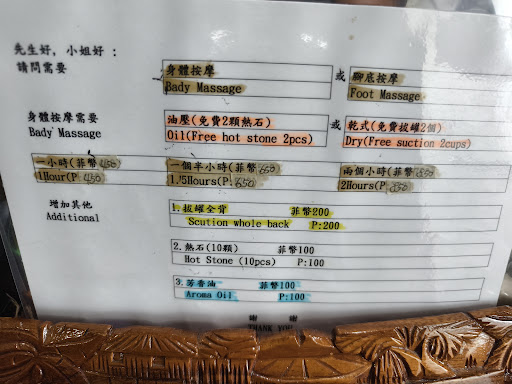 先生好, 小姐好 :
請問需要
身體按摩 或 腳底按摩
Bady Massage Foot Massage
身體按摩需要 油壓(免費2顆熱石) 或 乾式(免費拔罐2個)
Bady Massage Oil(Free hot stone 2pcs) Dry(Free suction 2cups)
一小時(菲幣450 一個半小時(菲幣650 兩個小時(菲幣850
1Hour(P: 450 1.5Hours(P: 650 2Hours(P: 850
增加其他 1.拔罐全背 菲幣200
Additional Scution whole back P:200
2.熱石(10顆) 菲幣100
Hot Stone (10pcs) P:100
3.芳香油 菲幣100
Aroma Oil P:100
謝 謝
THANK YOU